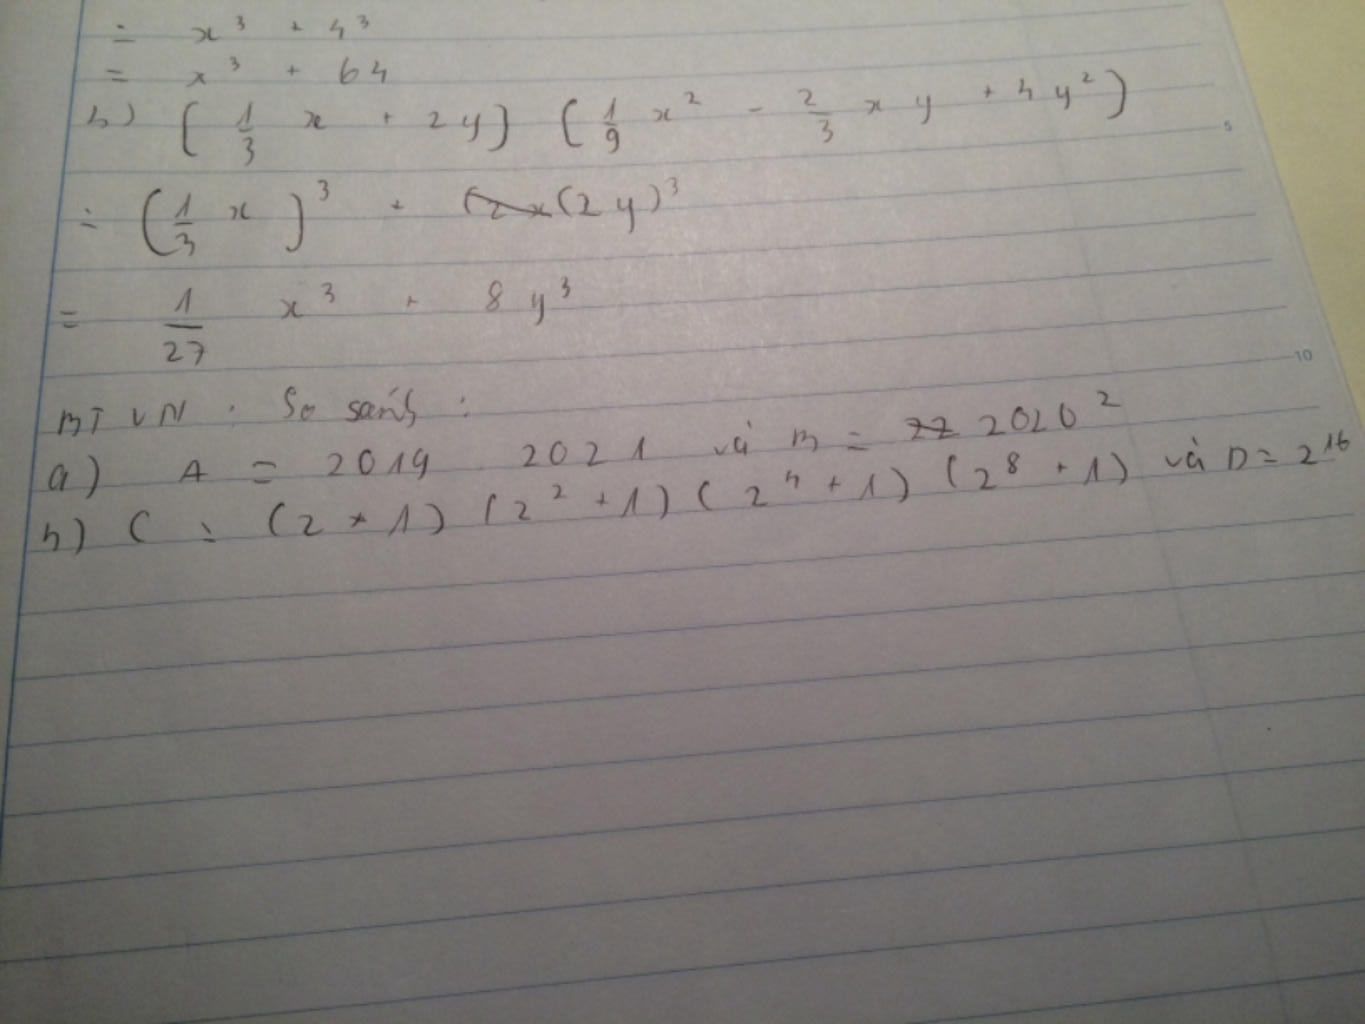 = x³ + 4³
= x³ + 64
b) (1/3 x + 2y) (1/9 x² - 2/3 xy + 4y²)
= (1/3 x)³ + (2y)³
= 1/27 x³ + 8y³
BTVN. So sánh:
a) A = 2019 . 2021 và B = 2020²
b) C = (2 + 1) (2² + 1) (2⁴ + 1) (2⁸ + 1) và D = 2¹⁶
5
10